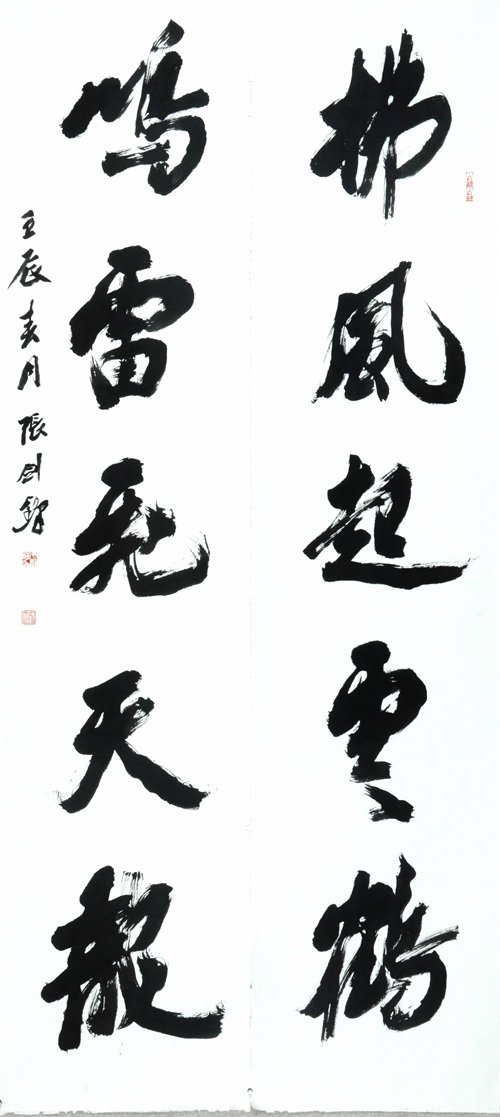 拂風起雲鶴
鳴雷飛天龍
壬辰春月張剑鋒